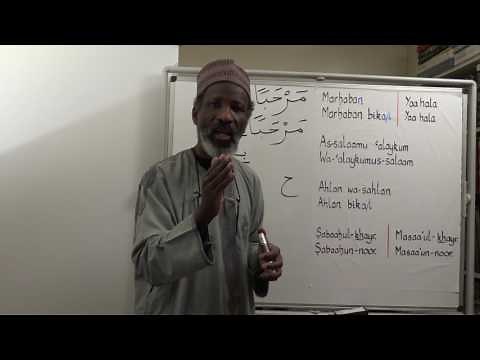 مَرْحَبًا
Marḥaban | Yaa hala
مَرْحَبًا
Marḥaban bika/i | Yaa hala
As-salaamu ʿalaykum
Wa-ʿalaykumus-salaam
ح
Ahlan wa-sahlan
Ahlan bika/i
Ṣabaaḥul-khayr | Masaa'ul-khayr
Ṣabaaḥun-noor | Masaa'un-noor